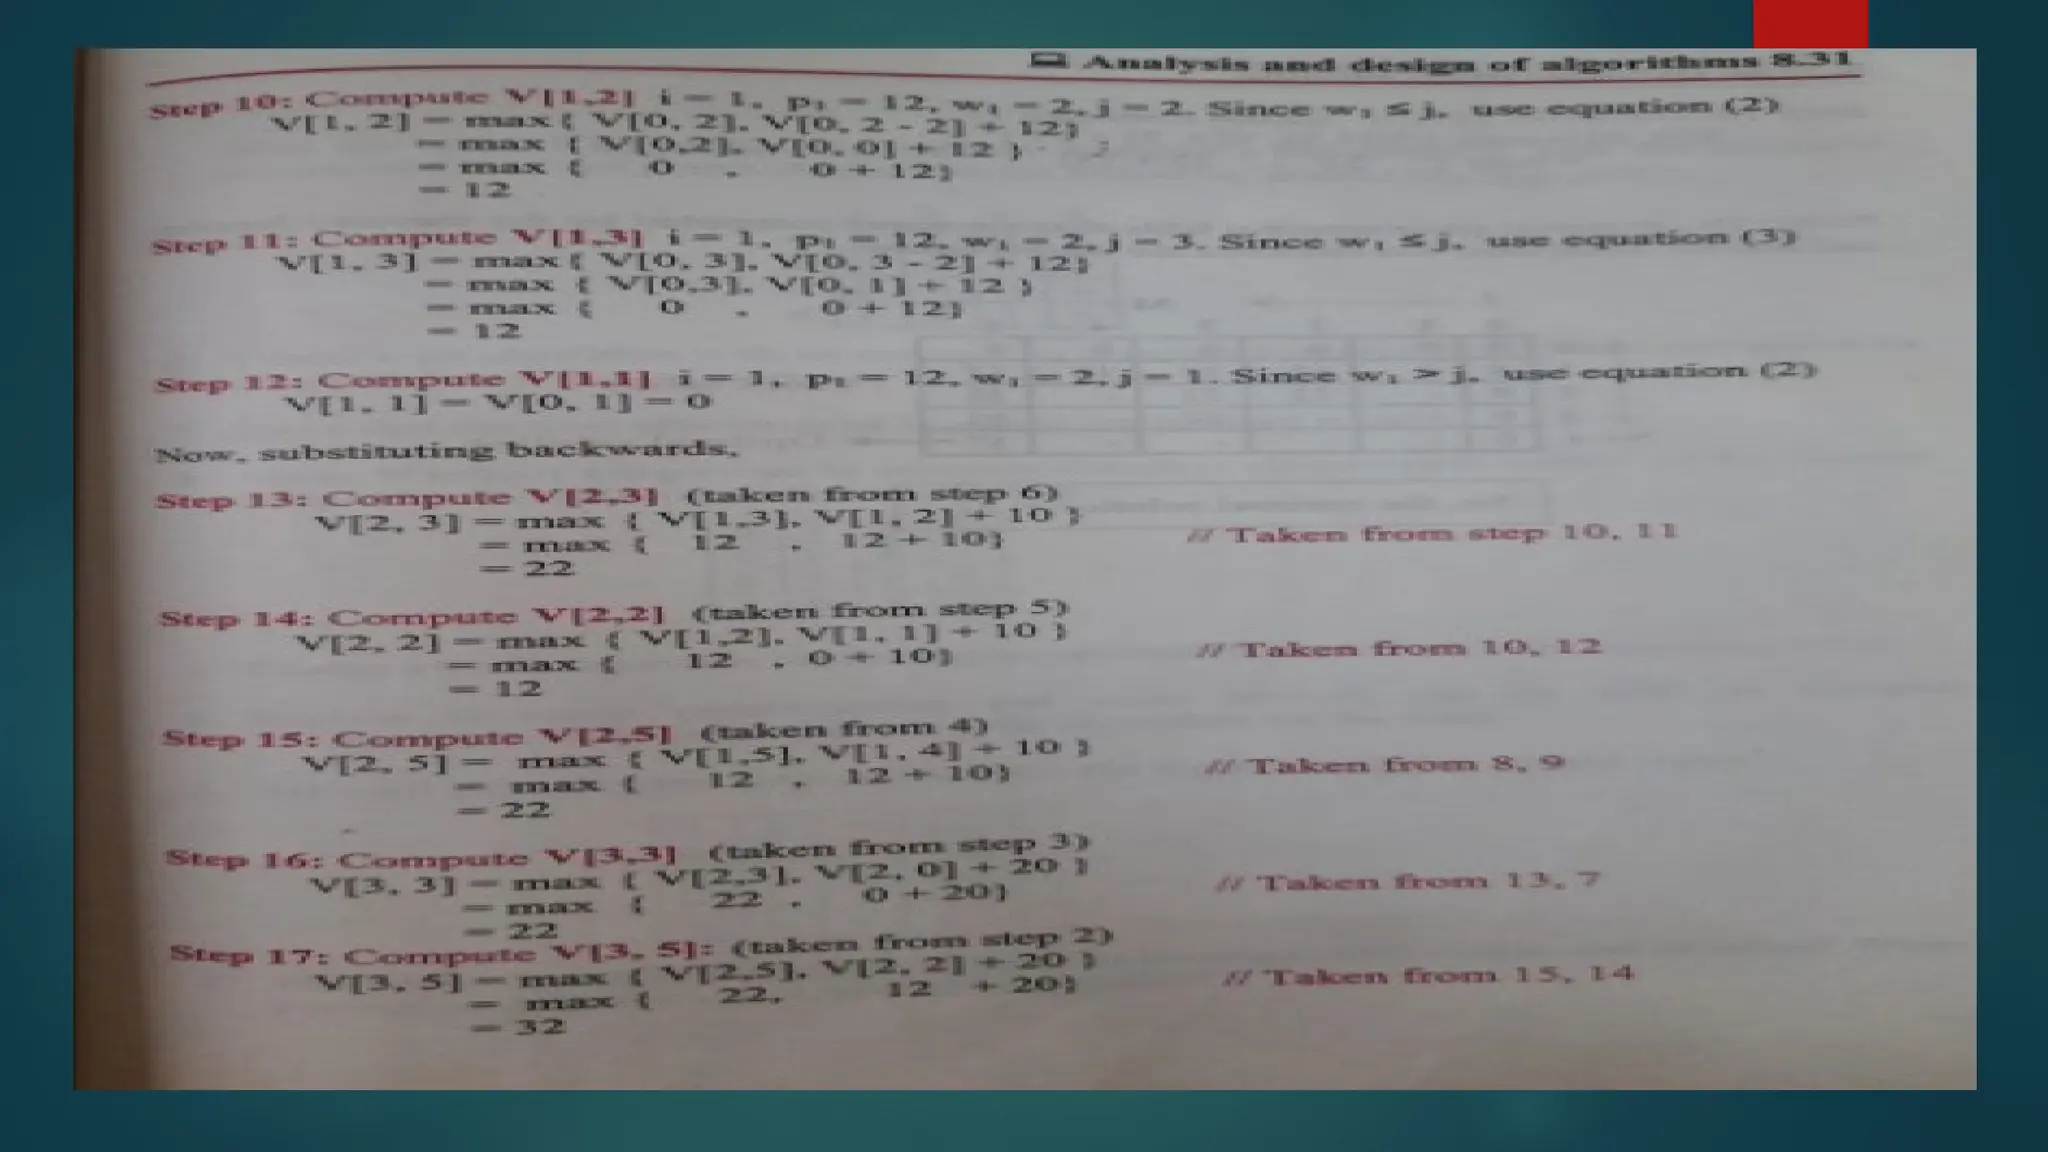 Analysis and design of algorithms 8.31
Step 10: Compute V[1,2] i = 1, p₁ = 12, w₁ = 2, j = 2. Since w₁ ≤ j, use equation (2)
V[1, 2] = max{ V[0, 2], V[0, 2 - 2] + 12}
= max { V[0,2], V[0, 0] + 12 }
= max { 0 , 0 + 12}
= 12
Step 11: Compute V[1,3] i = 1, p₁ = 12, w₁ = 2, j = 3. Since w₁ ≤ j, use equation (3)
V[1, 3] = max{ V[0, 3], V[0, 3 - 2] + 12}
= max { V[0,3], V[0, 1] + 12 }
= max { 0 , 0 + 12}
= 12
Step 12: Compute V[1,1] i = 1, p₁ = 12, w₁ = 2, j = 1. Since w₁ > j, use equation (2)
V[1, 1] = V[0, 1] = 0
Now, substituting backwards,
Step 13: Compute V[2,3] (taken from step 6)
V[2, 3] = max { V[1,3], V[1, 2] + 10 }
= max { 12 , 12 + 10} // Taken from step 10, 11
= 22
Step 14: Compute V[2,2] (taken from step 5)
V[2, 2] = max { V[1,2], V[1, 1] + 10 }
= max { 12 , 0 + 10} // Taken from 10, 12
= 12
Step 15: Compute V[2,5] (taken from 4)
V[2, 5] = max { V[1,5], V[1, 4] + 10 }
= max { 12 , 12 + 10} // Taken from 8, 9
= 22
Step 16: Compute V[3,3] (taken from step 3)
V[3, 3] = max { V[2,3], V[2, 0] + 20 }
= max { 22 , 0 + 20} // Taken from 13, 7
= 22
Step 17: Compute V[3, 5]: (taken from step 2)
V[3, 5] = max { V[2,5], V[2, 2] + 20 }
= max { 22, 12 + 20} // Taken from 15, 14
= 32